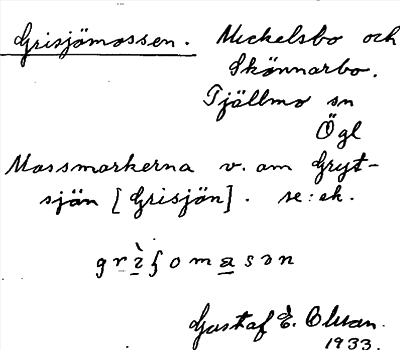 Grisjömossen. Mickelsbo och
Skönnarbo.
Tjällmo sn
Ögl
Mossmarkerna v. om Gryt-
sjön [Grisjön]. se: ek.
grìʃomasən
Gustaf E. Olsson.
1933.